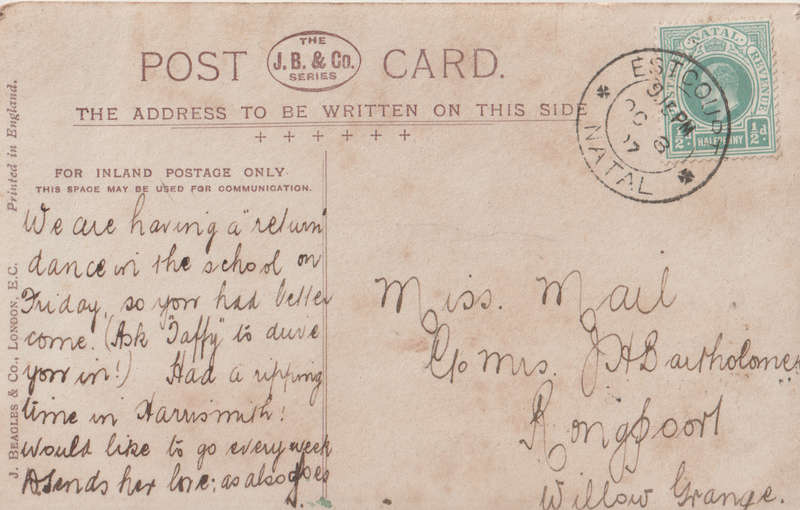 POST CARD.
THE
J.B. & Co.
SERIES
THE ADDRESS TO BE WRITTEN ON THIS SIDE
FOR INLAND POSTAGE ONLY
THIS SPACE MAY BE USED FOR COMMUNICATION.
We are having a "return"
dance in the school on
Friday, so you had better
come. (Ask "Taffy" to drive
you in!) Had a ripping
time in Harrismith!
Would like to go every week
A sends her love; as also does
J.
Miss. Mail
C/o Mrs. J H Bartholomew
Rongpoort
Willow Grange.
Printed in England.
J. BEAGLES & CO., LONDON, E.C.
NATAL
REVENUE
½d
HALFPENNY
½d
ESTCOURT
OC 8
07
NATAL